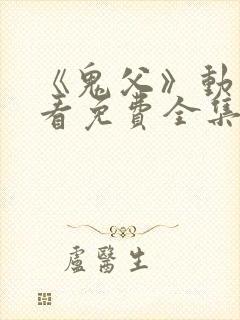 《鬼父》動
看免費全集
盧醫生